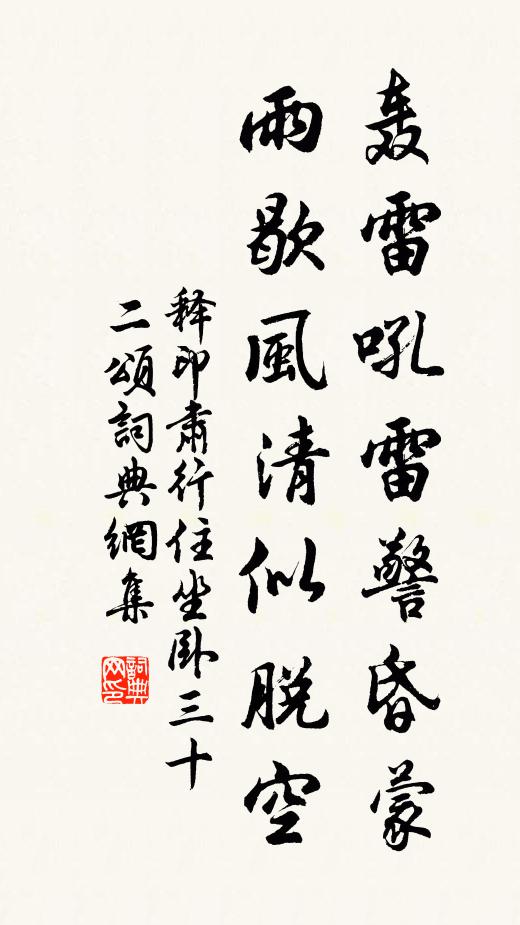 轰雷吼雷警昏蒙
雨歇風清似脱空
释印肃行住坐卧三十
二頌詞典網集
詞典网印